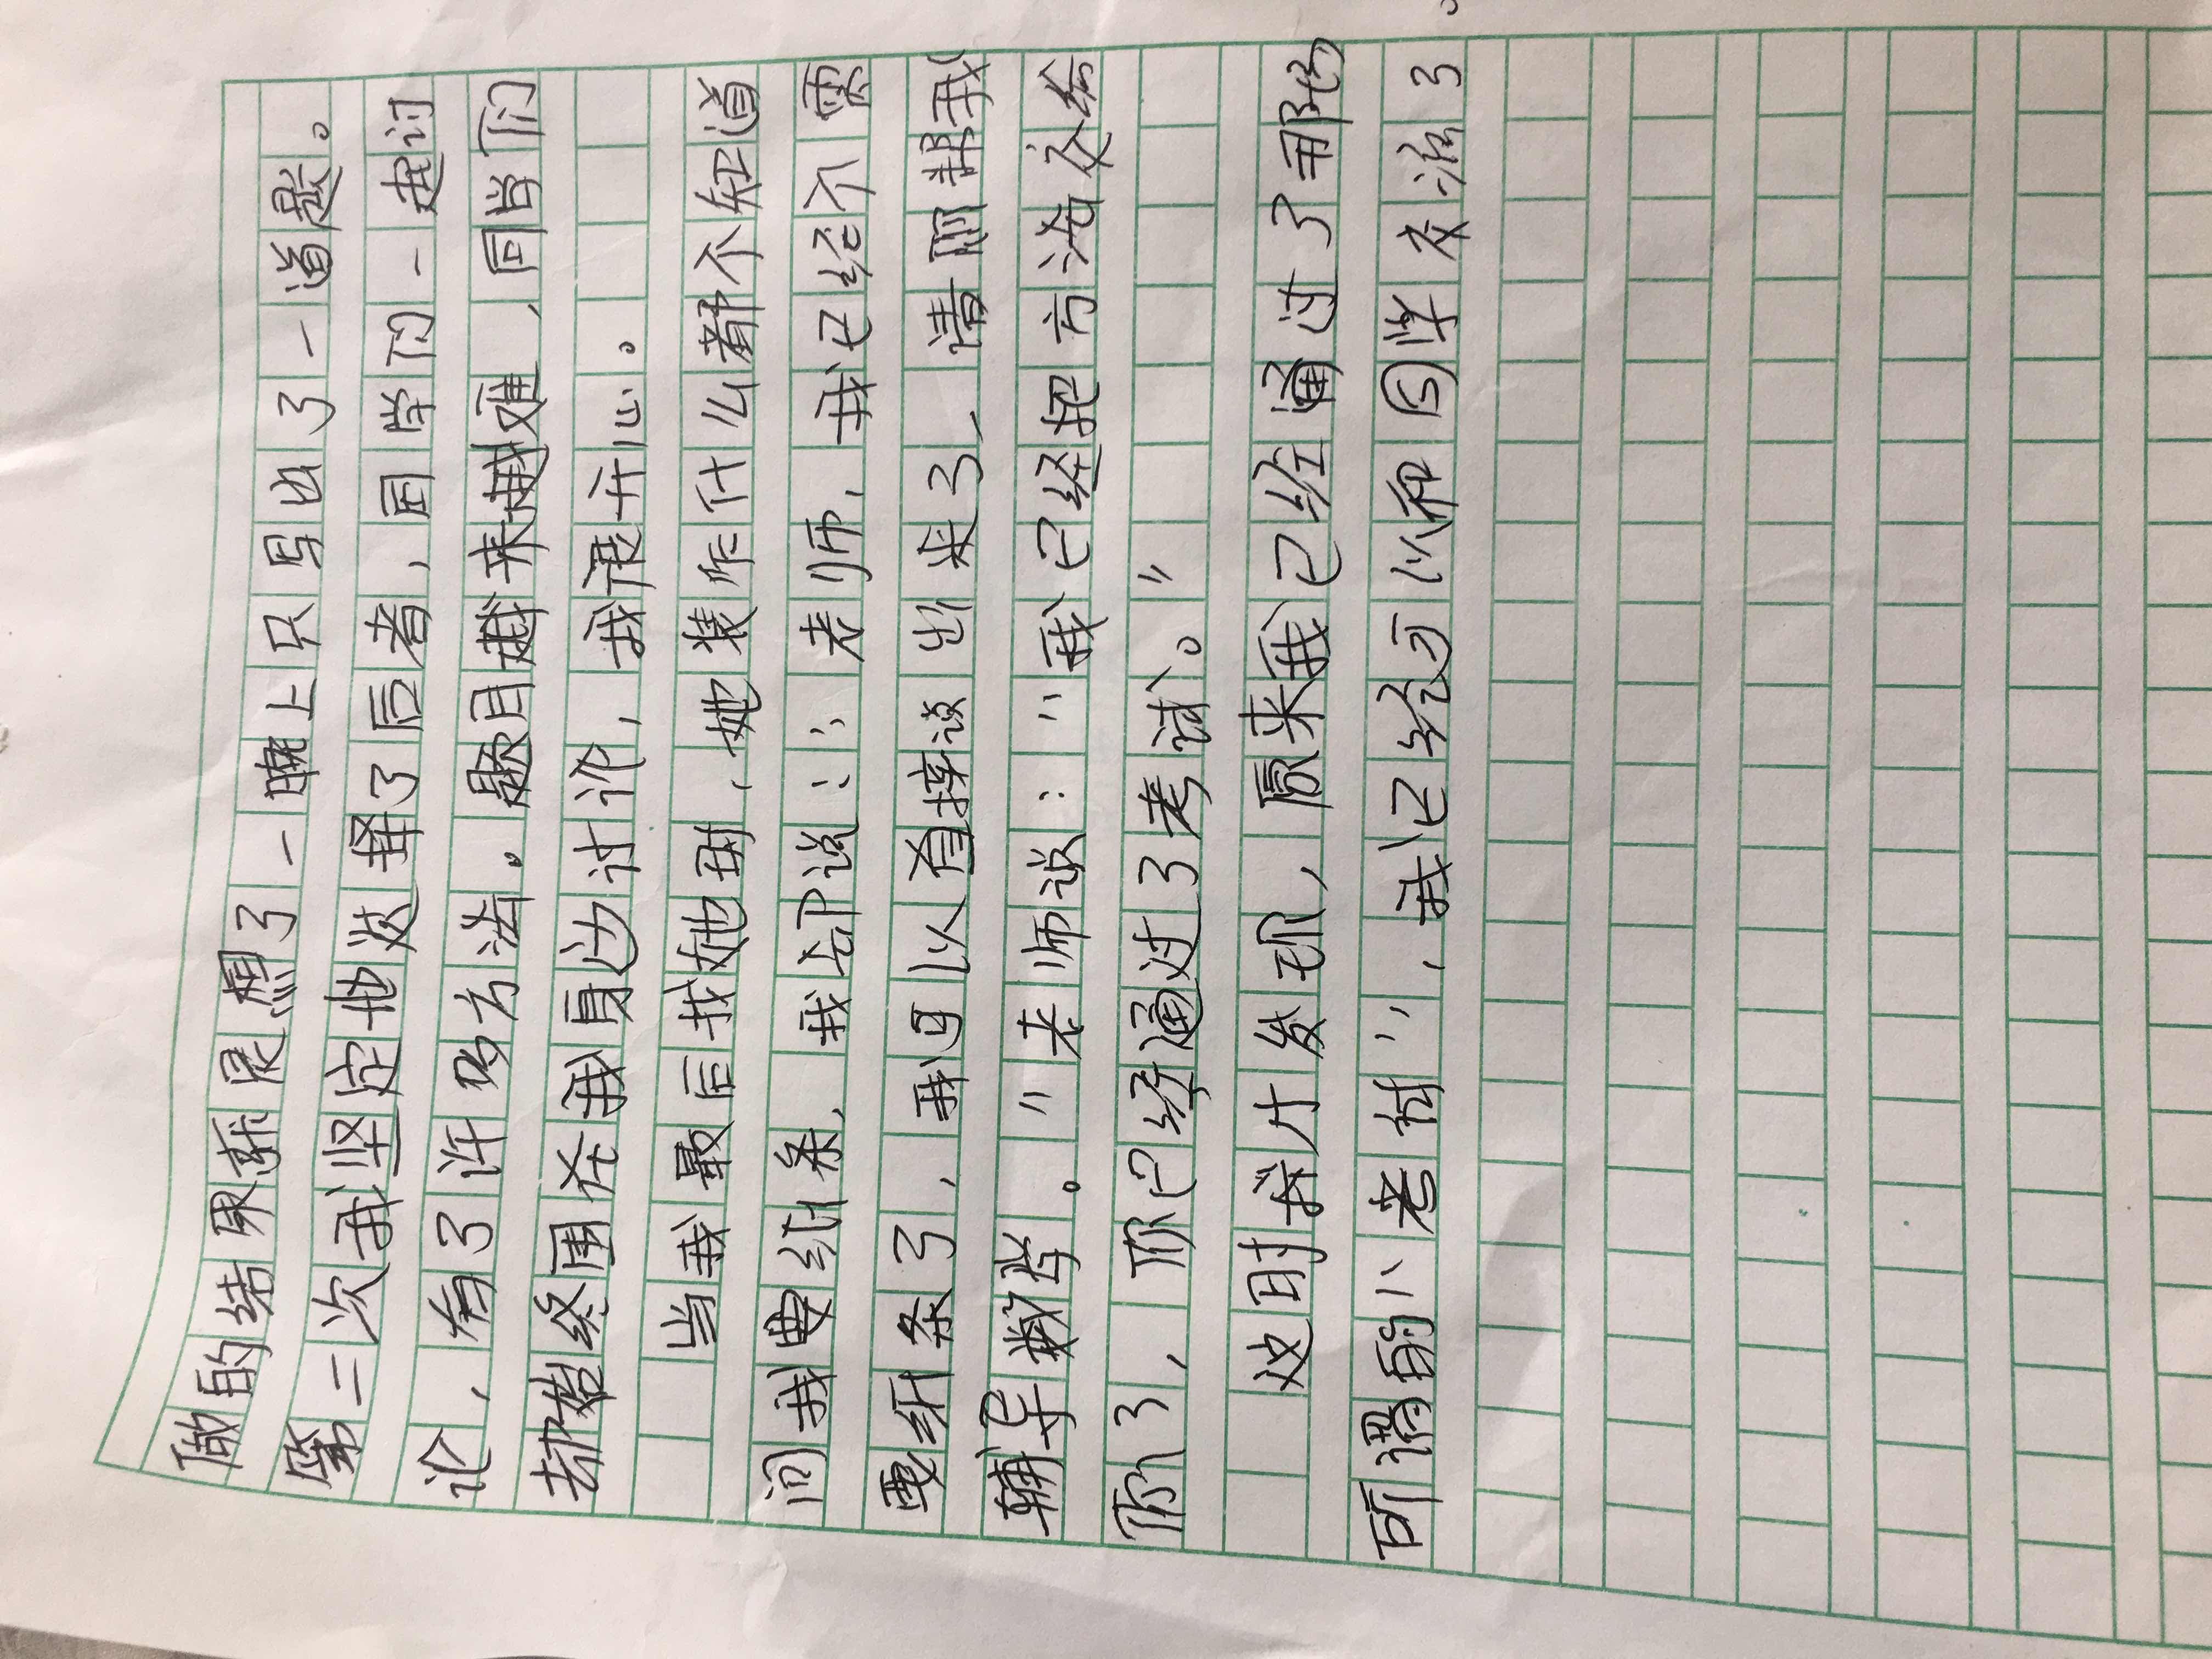 做的结果来展想了一晚上只写出了一道题。
第二次我坚定地选择了后者，同学们一起讨
论，有了许多方法。题目越来越难，同学们
却始终围在我身边讨论，我很开心。
当我最后找她时，她装作什么都不知道
问我要纸条，我却说：“老师，我已经不需
要纸条了，我可以直接说出来了，请你帮我
辅导数学。”老师说：“我已经把方法交给
你了，你已经通过了考试。”
这时我才发现，原来我已经通过了那场
所谓的小考试”，我已经可以和同学交流了
。